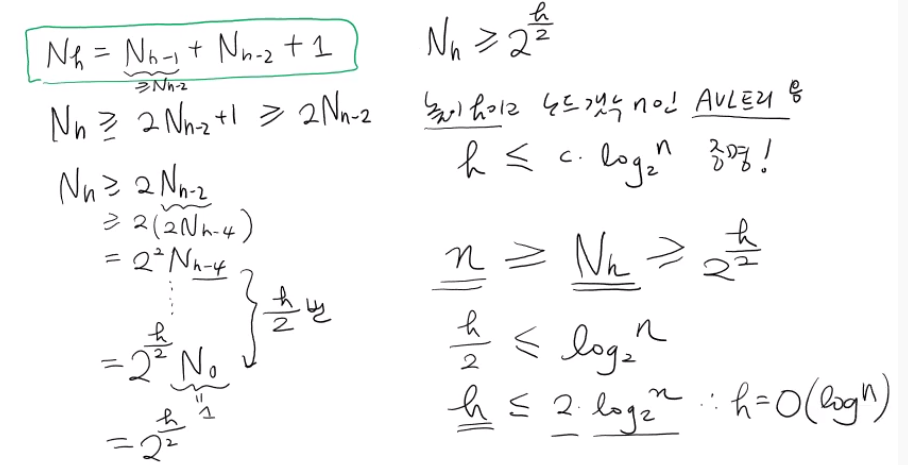 N_h = N_{h-1} + N_{h-2} + 1
≥N_{h-2}
N_h ≥ 2N_{h-2}+1 ≥ 2N_{h-2}
N_h ≥ 2N_{h-2}
≥ 2(2N_{h-4})
= 2²N_{h-4}
⋮
h/2 번
= 2^{h/2} N_0
= 1
= 2^{h/2}
N_h ≥ 2^{h/2}
높이 h이고 노드갯수 n인 AVL트리 용
h ≤ c · log_2 n 증명!
n ≥ N_h ≥ 2^{h/2}
h/2 ≤ log_2 n
h ≤ 2 · log_2 n ∴ h = O(log n)